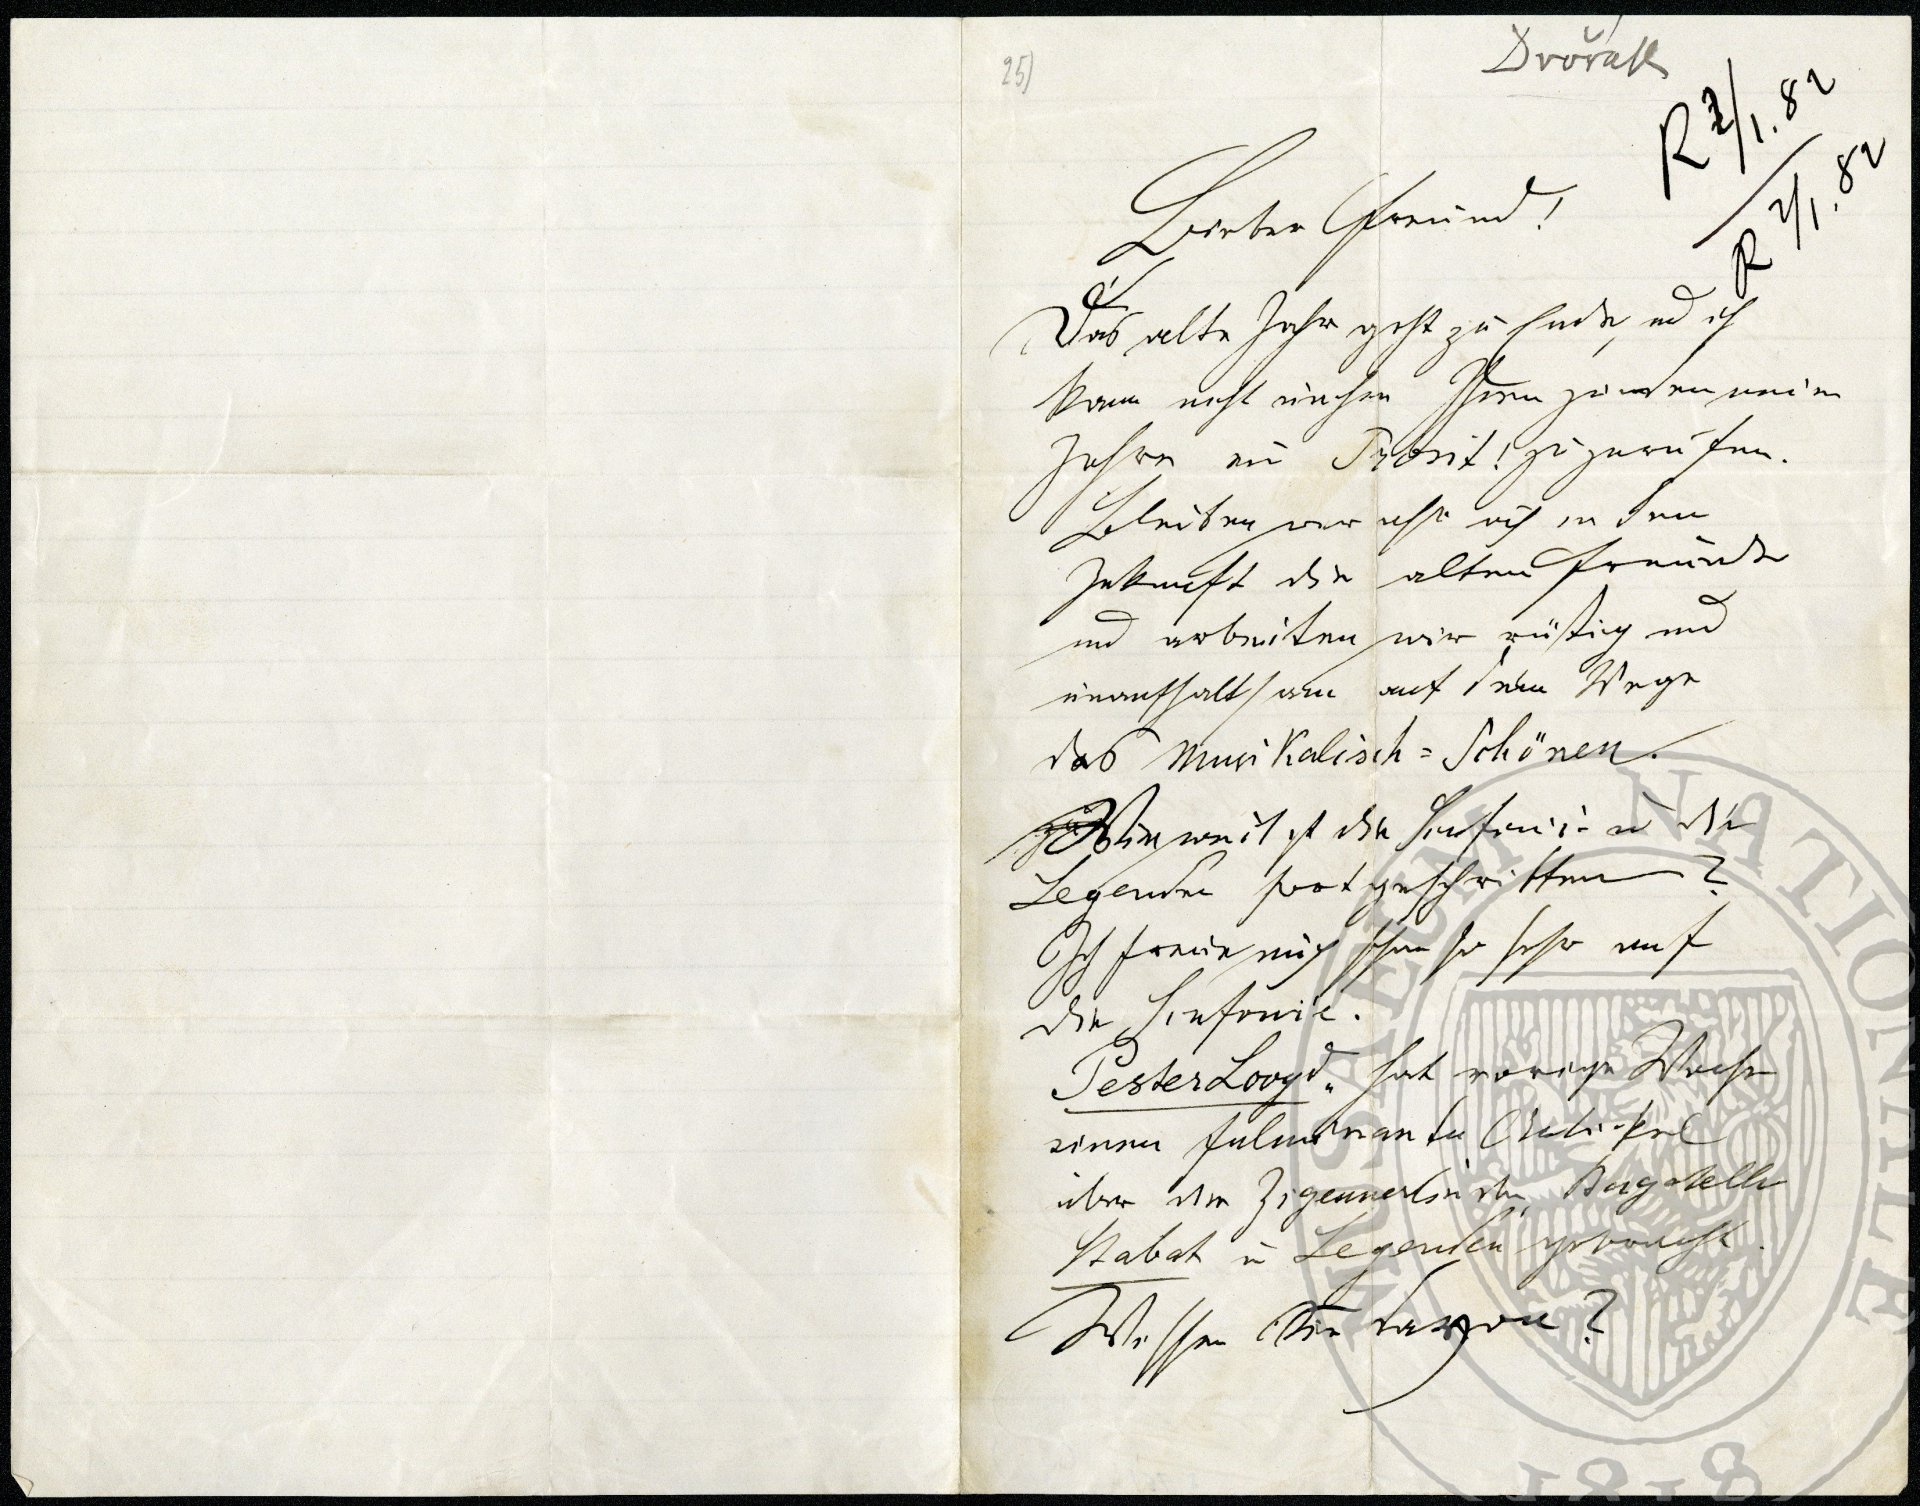 25)
Dvořák
R 2/1. 82
R 2/1. 82
Lieber Freund!
Das alte Jahr geht zu Ende, und ich
kann nicht umhin Ihnen zum neuen
Jahre ein Prosit! zuzurufen.
Bleiben wir also auch in der
Zukunft die alten Freunde
und arbeiten wir rüstig und
unaufhaltsam auf dem Wege
des Musikalisch=Schönen.
Wie weit ist die Sinfonie u die
Legenden fortgeschritten?
Ich freue mich schon so sehr auf
die Sinfonie.
Pester Looyd" hat vorige Woche
einen fulminanten Artikel
über die Zigeunerlieder, Bagatelle
Stabat u Legenden gebracht.
Wissen Sie davon?
MUSAEUM NATIONALE
1818